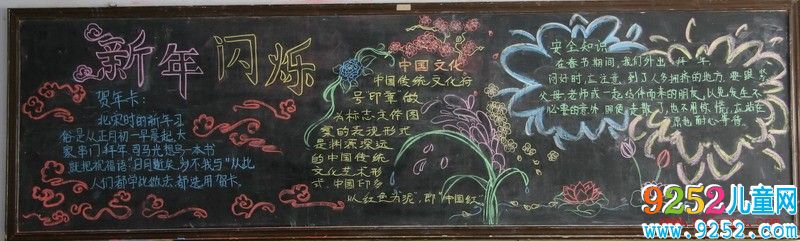 新年闪烁
贺年卡:
北宋时的新年习
俗是从正月初一早晨起大
家串门拜年 司马光想马一本书
就把祝福语"日月蹉跎 岁不我与"从此
人们都学找做法 都选用贺卡。
中国文化
中国传统文化符
号"印章"做
为标志文件图
案的表现形式
是渊源深远
的中国传统
文化艺术形
式 中国印多
以红色为泥,即"中国红"
安全知识
在春节期间,我们外出拜年
问好时,应注意,到了人多拥挤的地方,要跟紧
父母,老师或一起结伴而来的朋友,以免发生不
必要的意外 即使走散了,也不用惊慌,应站在
原地耐心等待。
9252儿童网
www.9252.com